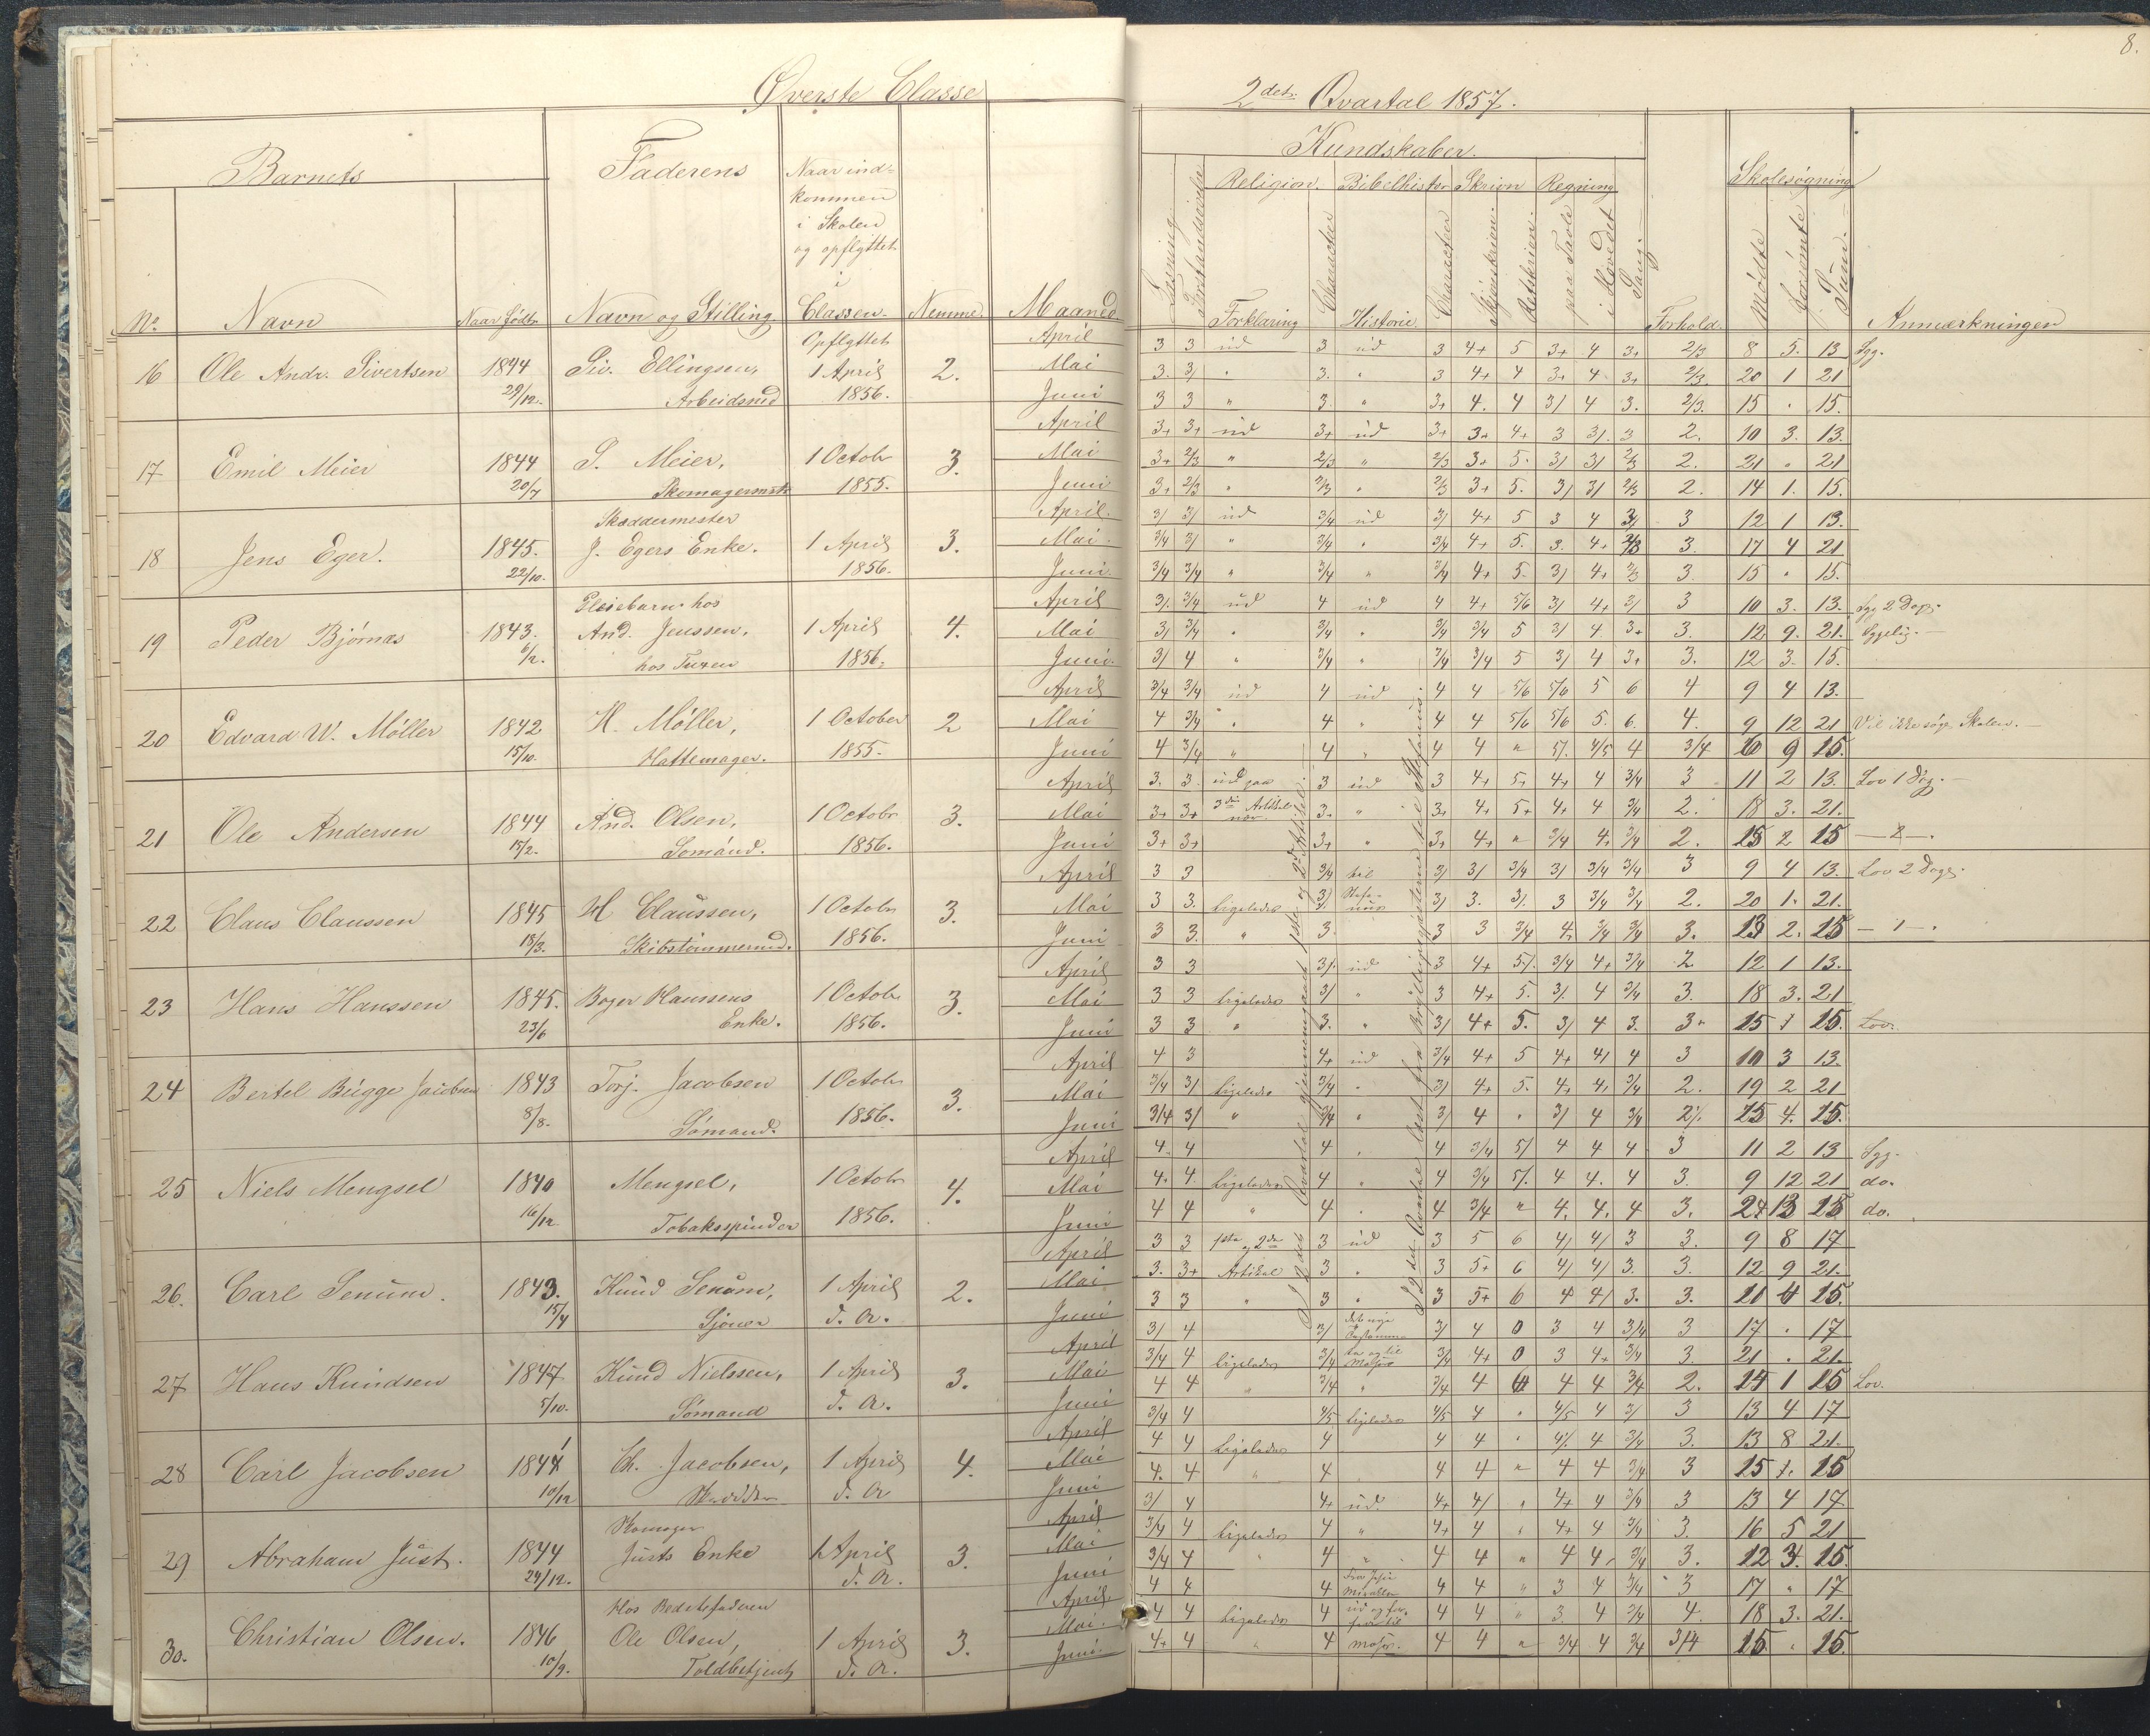 Øverste Classe
2det Qvartal 1857.
8.
Barnets
Faderens
Naar ind-
kommen
i Skolen
og opflyttet
i
Classen.
Kundskaber.
Religion. Bibelhistor Skrivn Regning
Skolesøgning
No. Navn Naar født Navn og Stilling Nemme. Maaned
Læsning Forklaring Character Historie Character Skjønskrivn. Retskrivn. paa Tavle i Hovedet Sang. Forhold. Mødte forsømte Sum. Anmærkninger
16 Ole Andr. Sivertsen 1844 29/12. Siv. Ellingsen, Arbeidsmd Opflyttet 1 April 1856. 2.
April 3 3 ud 3 ud 3 4+ 5 3+ 4 3+ 2/3 8 5. 13 Syg.
Mai 3. 3/ " 3. " 3 4+ 4 3+ 4 3+ 2/3. 20 1 21
Juni 3 3 " 3. " 3+ 4. 4 3/ 4 3. 2/3. 15 " 15.
17 Emil Meier 1844 20/7 S. Meier, Skomagermstr 1 Octobr 1855. 3.
April 3+ 3+ ud 3+ ud 3+ 3+ 4+ 3 3/. 3 2. 10 3. 13.
Mai 3+ 2/3 " 2/3 " 2/3 3+ 5. 3/ 3/ 2/3 2. 21 " 21
Juni 3+ 2/3 " 2/3 " 2/3 3+ 5. 3/ 3/ 2/3 2. 14 1. 15.
18 Jens Eger. 1845. 22/10. Skræddermester J. Egers Enke. 1 April 1856. 3.
April. 3/ 3/ ud 3/4 ud 3/ 4+ 5 3 4 3/ 3 12 1 13.
Mai. 3/4 3/ " 3/4 " 3/4 4+ 5. 3. 4+ 2/3 3. 17 4 21
Juni. 3/4 3/4 " 3/4 " 3/4 4+ 5. 3/ 4+ 2/3 3. 15 " 15.
19 Peder Bjørnæs 1843. 6/2. Pleiebarn hos And. Jenssen, hos Tuxen 1 April 1856. 4.
April 3/. 3/4 ud 4 ud 4 4+ 5/6 3/ 4+ 3/ 3 10 3. 13. Syg 2 Dage.
Mai 3/ 3/4 " 3/4 " 3/4 3/4 5 3/ 4 3+ 3. 12 9. 21. Sygelig.
Juni. 3/ 4 " 3/4 " 3/4 3/4 5 3/ 4 3+ 3. 12 3. 15.
20 Edvard W. Møller 1842 15/10. H. Møller, Hattemager. 1 October 1855. 2
April 3/4 3/4 ud 4 ud 4 4 5/6 5/6 5 6 4 9 4 13.
Mai 4 3/4 " 4 " 4 4 5/6 5/6 5. 6. 4. 9 12 21 Vil ikke søge Skolen.
Juni 4 3/4 " 4 " 4 4 " 5/. 4/5 4 3/4 9 15.
21 Ole Andersen 1844 15/2. And. Olsen, Sømand. 1 Octobr 1856. 3.
April 3. 3. ud paa 3 ud 3 4+ 5+ 4+ 4 3/4 3 11 2 13. Lov 1 Dag.
Mai 3+ 3+ 3die Artikel nær. 3+ " 3+ 4+ 5+ 4+ 4 3/4 2. 18 3. 21.
Juni 3+ 3+ 3+ " 3+ 4+ " 3/4 4+ 3/4 2. 2 15 — 2 —.
22 Claus Claussen 1845 18/3. H Claussen, Skibstømmermd. 1 Octobr 1856. 3.
April 3 3 3/4 til 3/ 3/ 3/4 3/ 3/4 3/4 3 9 4 13. Lov 2 Dage.
Mai 3 3. Ligeledes 3/. Stefanus 3/ 3. 3/. 3 3/4 3/4 2. 20 1. 21.
Juni 3 3. " 3. 3 3 3/4 4. 3/4 3/4 3. 13 2. 15 — 1 —.
23 Hans Hanssen 1845. 23/6 Boyer Hanssens Enke. 1 Octobr 1856. 3.
April 3 3 3/. ud 3 4+ 5/. 3/4 4+ 3/4 2 12 1 13.
Mai 3 3 Ligeledes 3/ " 3 4+ 5. 3/. 4 3/4 3. 18 3. 21
Juni 3 3 " 3. " 3/ 4+ 5. 3/ 4 3. 3+ 15 15. Lov.
24 Bertel Bugge Jacobsen 1843 8/8. Torj. Jacobsen Sømand. 1 Octobr 1856. 3.
April 4 3 4+ ud 3/4 4+ 5 4+ 4/ 4 3 10 3 13.
Mai 3/4 3/ Ligeledes 3/4 " 3/ 4+ 5. 4+ 4+ 3/4 2. 19 2 21
Juni 3/4 3/ " 3/4 " 3/ 4 " 3/ 4 3/4 2/. 4. 15.
25 Niels Mengsel 1840 16/12 Mengsel, Tobaksspinder 1 Octobr 1856. 4.
April 4. 4 4 " 4 3/4 5/ 4 4 4 3 11 2 13 Syg.
Mai 4. 4. Ligeledes 4 " 4 3/4 5/. 4 4. 4 3. 9 12 21 do.
Juni 4 4 " 4 " 4 3/4 " 4. 4. 4 3. 13 15 do.
26. Carl Senum. 1843. 15/4 Knud Senum, Sjouer 1 April d. A. 2.
April 3 3 1ste og 2den 3 ud 3 5 6 4/ 4/ 3 3. 9 8 17
Mai 3. 3+ Artikel 3 " 3 5+ 6 4/ 4/ 3. 3. 12 9 21.
Juni 3 3 " 3 " 3 5+ 6 4 4/ 3. 3. 11 4 15.
27 Hans Knudsen 1847 5/10. Knud Nielssen, Sømand 1 April d. A. 3.
April 3/ 4 3/ det nye 3/ 4 0 3 4 3/4 3 17 " 17
Mai 3/4 4 Ligeledes 3/4 Moses 3/4 4+ 0 3 4+ 3/4 3. 21 " 21.
Juni 4 4 " 3/4 " 3/4 4 4 4 3/4 2. 14 1 15 Lov.
28 Carl Jacobsen 1844 10/12 Ch. Jacobsen, Skrædder 1 April d. A 4.
April 3/4 4 4/5 Ligeledes 4/5 4 " 4/5 4 3/ 3 13 4 17
Mai 4 4 Ligeledes 4 4 4 " 4/. 4 3/4 3. 13 8 21.
Juni 4. 4 " 4 4 4 " 4 4 3/4 3 15 15
29 Abraham Just. 1844 24/12. Skomager Justs Enke 1 April d. A. 3.
April 3/ 4 4+ ud. 4+ 4/ " 4+ 4 3/4 3 13 4 17
Mai 3/4 4 Ligeledes 4 " 4+ 4 " 4+ 4 3/4 3. 16 5 21
Juni 3/4 4 " 4 " 4 4 " 4 4 3/4 3. 12 3. 15.
30. Christian Olsen. 1846 10/9. Hos Bedstefaderen Ole Olsen, Toldbetjent 1 April d. A. 3.
April 4 4 4 Fra Jesu Mirakler 4 4 " 3 4 3/4 3 17 " 17
Mai. 4 4 Ligeledes 4 ud og 4 4 " 3. 4 3/4 4. 18 3. 21.
Juni. 4+ 4 " 4 Moses. 4 4 " 3/4 4 3/4 3/4 15 " 15.